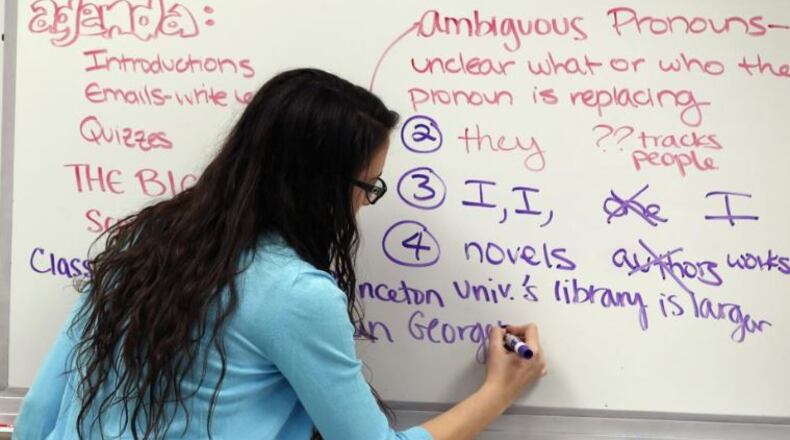 agenda:
Introductions
Emails-write
Quizzes
THE
Class
ambiguous Pronouns-
unclear what or who the
pronoun is replacing
② they ?? tracks
people
③ I, I, one I
④ novels authors works
Univ.'s library is larger